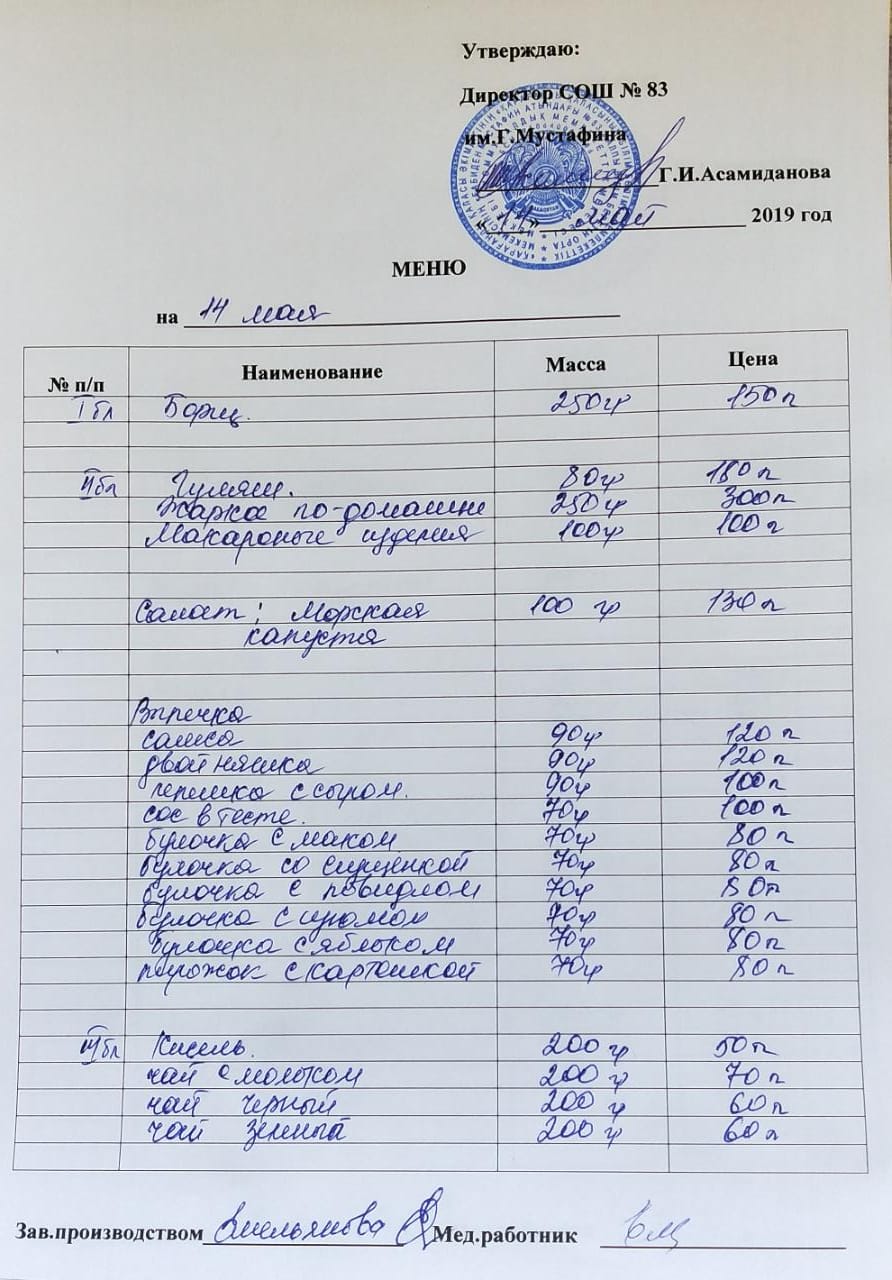 Утверждаю:
Директор СОШ № 83
им.Г.Мустафина
Г.И.Асамиданова
«14» май 2019 год
МЕНЮ
на 14 мая
№ п/п Наименование Масса Цена
I бл Борщ. 250гр 150т
II бл Гуляш. 80гр 180т
Жаркое по-домашне 250гр 300т
Макароные изделия 100гр 100т
Салат: Морская 100 гр 130т
капуста
Выпечка
самса 90гр 120т
двойняшка 90гр 120т
лепешка с сыром. 90гр 100т
сос в тесте. 70гр 100т
булочка с маком 70гр 80т
булочка со сгущенкой 70гр 80т
булочка с повидлом 70гр 80т
булочка с изюмом 70гр 80т
булочка с яблоком 70гр 80т
пирожок с картошкой 70гр 80т
III бл Кисель. 200 гр 50т
чай с молоком 200 гр 70т
чай черный 200 гр 60т
чай зеленый 200 гр 60т
Зав.производством Емельянова Мед.работник